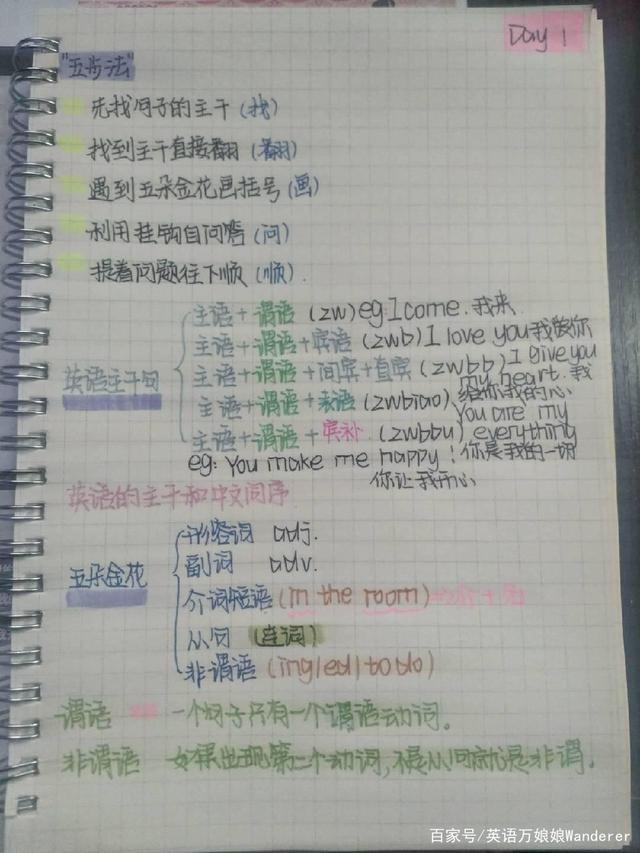 Day 1
"五步法"
先找句子的主干(找)
找到主干直接翻(翻)
遇到五朵金花画括号(画)
利用挂钩自问答(问)
提着问题往下顺(顺).
英语主干句
主语+谓语 (zw) eg I come. 我来
主语+谓语+宾语 (zwb) I love you 我爱你
主语+谓语+间宾+直宾 (zwbb) I give you my heart. 我给你我的心
主语+谓语+表语 (zwbiao) You are my everything 你是我的一切
主语+谓语+宾补 (zwbbu)
eg: You make me happy! 你让我开心
英语的主干和中文同序
五朵金花
形容词 adj.
副词 adv.
介词短语 (in the room)
从句 (连词)
非谓语 (ing/ed/to do)
谓语 一个句子只有一个谓语动词。
非谓语 如果出现第二个动词,不是从句就是非谓.
百家号/英语万娘娘Wanderer